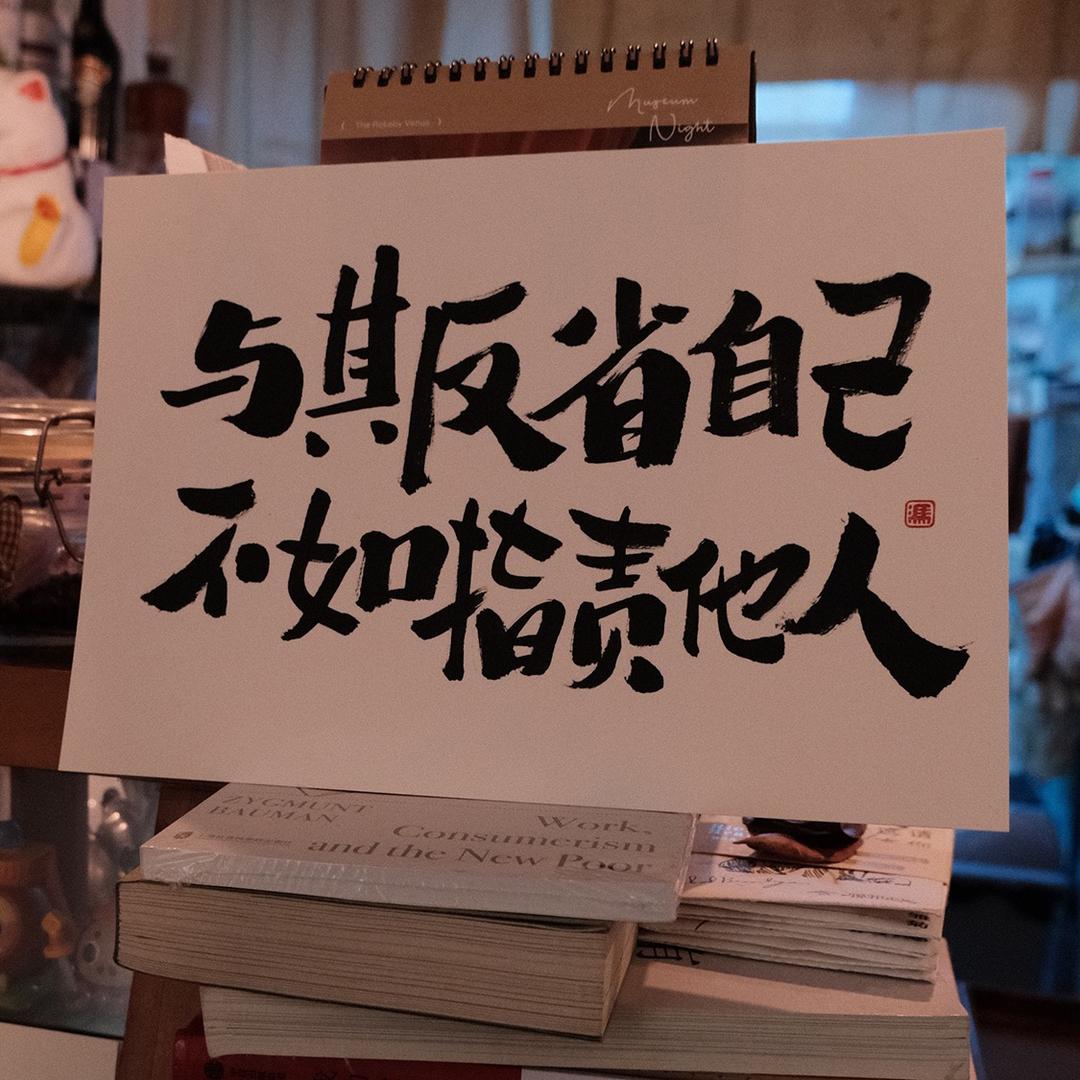 Museum
Night
( The Rokeby Venus )
与其反省自己
不如指责他人
馮
ZYGMUNT
BAUMAN
Work,
Consumerism
and the New Poor